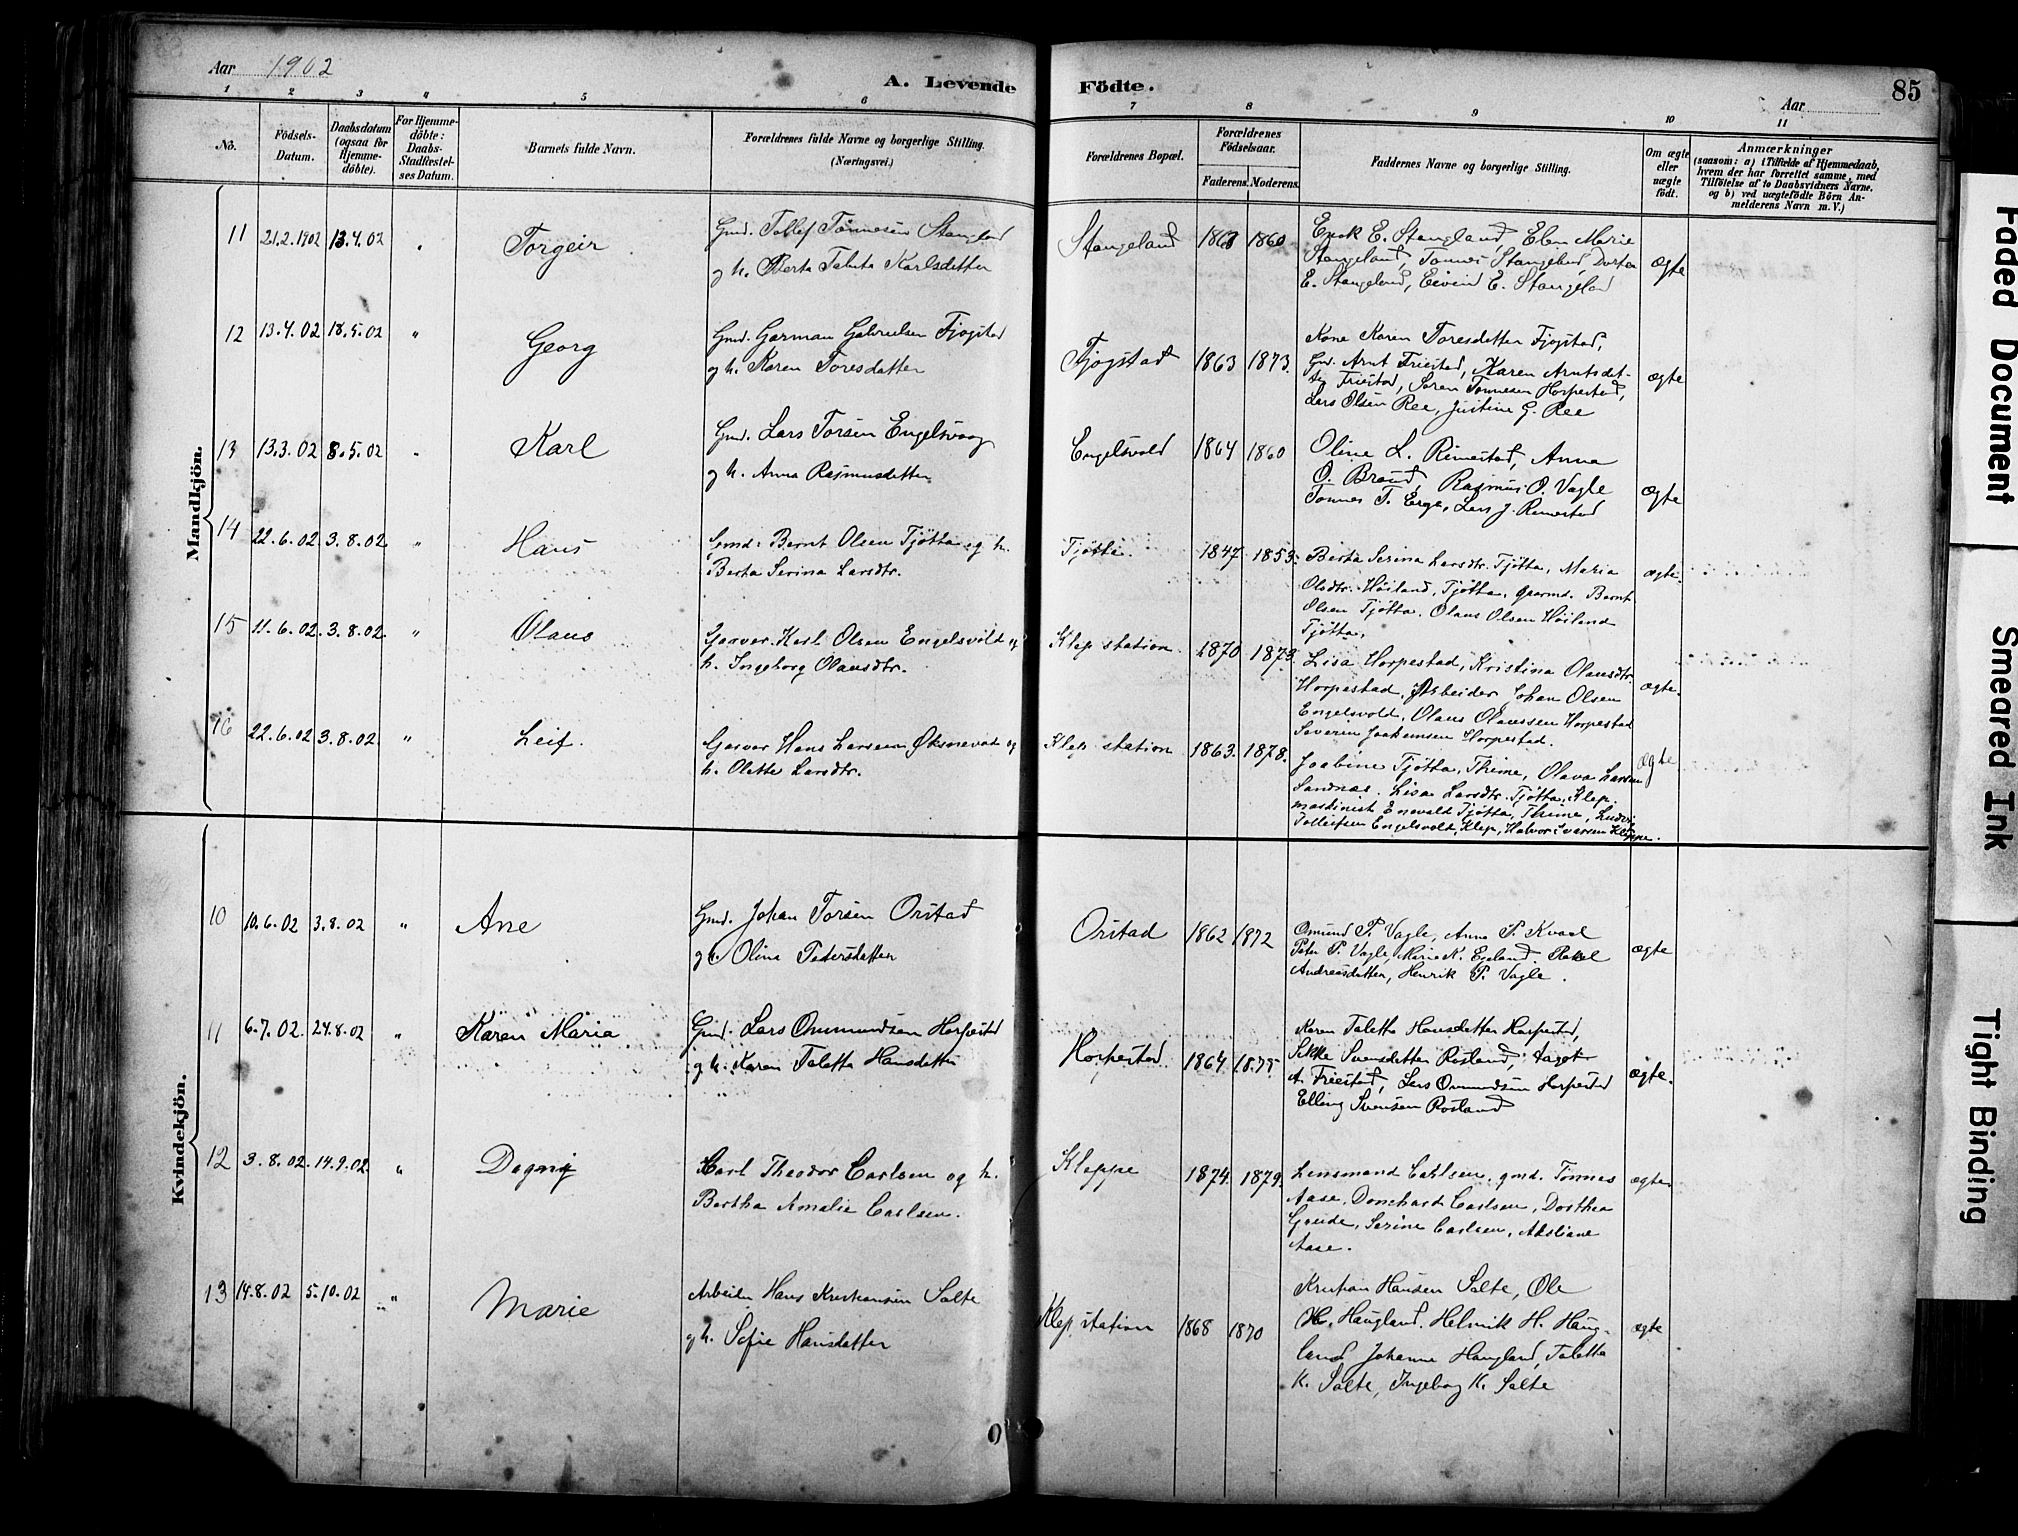 Aar 1902
A. Levende Födte.
Aar
85
1 2 3 4 5 6 7 8 9 10 11
No.
Födsels-Datum.
Daabsdatum (ogsaa for Hjemme-döbte).
For Hjemme-döbte: Daabs-Stadfæstel-ses Datum.
Barnets fulde Navn.
Forældrenes fulde Navne og borgerlige Stilling. (Næringsvei.)
Forældrenes Bopæl.
Forældrenes Födselsaar.
Faderens. Moderens.
Faddernes Navne og borgerlige Stilling.
Om ægte eller uægte födt.
Anmærkninger
(saasom: a) i Tilfælde af Hjemmedaab,
hvem der har forrettet samme, med
Tilföielse af to Daabsvidners Navne,
og b) ved uægtefödte Börn An-
melderens Navn m. V.)
Mandkjön.
11 21.2.1902 13.4.02 " Torgeir
Gmd. Tollef Tønnesen Stangland
og h. Berta Talleta Karlsdatter
Stangeland 1860
E. Stangland, Elen Marie
Stangeland, Tønnes Stangeland, Dortea
E. Stangeland, Eivind E. Stangeland
ægte
12 13.4.02 18.5.02 " Georg
Gmd. Garman Gabrielsen Fjogstad
og h. Karen Toresdatter
Fjogstad 1863 1873.
Kone Karen Toresdatter Fjogstad,
Gmd. Arnt Friestad, Karen Arntsdat-
ter Friestad, Søren Tønnesen Horpestad,
Lars Olsen Ree, Justine G. Ree
ægte
13 13.3.02 8.5.02 " Karl
Gmd. Lars Torsen Engelsvaag
og h. Anna Rasmusdatter
Engelsvold 1864 1860
Oline L. Rimestad, Anna
O. Braud, Rasmus O. Vagle
Tønnes T. Erga, Lars J. Rimestad
ægte
14 22.6.02. 3.8.02. " Hans
Gmd. Bernt Olsen Tjøtta og h.
Berta Serina Larsdtr.
Tjøtta. 1847 1853.
Berta Serina Larsdtr. Tjøtta, Maria
Olsdtr. Høiland, Tjøtta, Gaarmd. Bernt
Olsen Tjøtta. Olaus Olsen Høiland
Tjøtta.
ægte.
15 11.6.02. 3.8.02. " Olaus
Garver Karl Olsen Engelsvold og
h. Ingeborg Olausdtr.
Klep station. 1870 1873.
Lisa Horpestad, Kristina Olausdtr.
Horpestad, Arbeider Johan Olsen
Engelsvold, Olaus Olaussen Horpestad
Severin Joakimsen Horpestad.
ægte.
16 22.6.02. 3.8.02. " Leif.
Garver Hans Larsen Øksnevad og
h. Olette Larsdtr.
Klep station 1863. 1878.
Jaabine Tjøtta, Thime, Olava Larsen
Sandnæs. Lisa Larsdtr. Tjøtta, Klep,
maskinist Enevald Tjøtta, Thime,
Tolleifsen Engelsvold Klep, Halvor Ivarsen Kleppe.
ægte
Kvindekjön.
10 10.6.02 3.8.02 " Ane
Gmd. Johan Torsen Orstad
og h. Olina Pedersdatter
Orstad 1862 1872
Omund P. Vagle, Anna P. Kvaal
Peter P. Vagle, Marie K. Egeland. Rakel
Andreasdatter, Henrik P. Vagle.
ægte
11 6.7.02. 24.8.02 " Karen Maria
Gmd. Lars Ommundsen Horpestad
og h. Karen Taletta Hansdatter
Horpestad 1864 1875
Karen Taletta Hansdatter Horpestad,
Sikke Svensdatter Rosland,
A. Friestad, Lars Ommundsen Horpestad
Elling Svensen Rosland
ægte.
12 3.8.02. 14.9.02 " Dagny
Carl Theodor Carlsen og h.
Bertha Amalie Carlsen.
Kleppe 1874. 1879.
Lensmand Carlsen, gmd. Tønnes
Aase, Carlsen, Dorthea
Grude, Serine Carlsen,
Aase.
ægte
13 14.8.02 5.10.02 " Marie
Arbeider Hans Kristiansen Salte
og h. Sofie Hansdatter
Klep station 1868 1870
Kristian Hansen Salte, Ole
H. Haugland. Helmik H. Haug-
land, Johanne Haugland, Taletta
K. Salte, Ingeborg K. Salte
ægte
Faded Document
Smeared Ink
Tight Binding